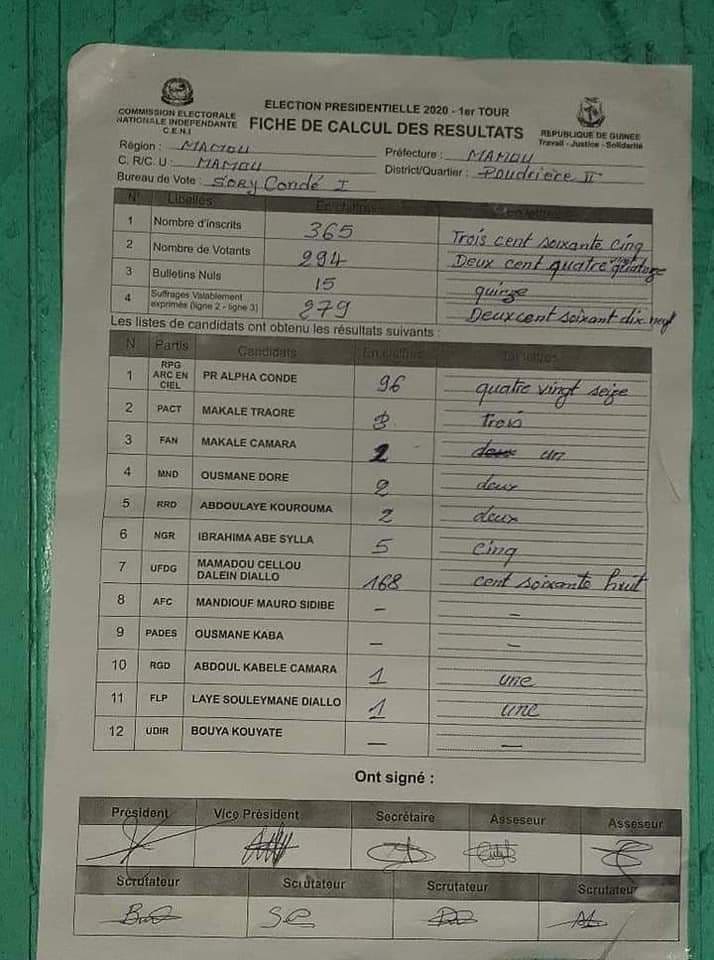 COMMISSION ELECTORALE
NATIONALE INDEPENDANTE
C.E.N.I
ELECTION PRESIDENTIELLE 2020 - 1er TOUR
FICHE DE CALCUL DES RESULTATS
REPUBLIQUE DE GUINEE
Travail - Justice - Solidarité
Région : MAMOU
Préfecture : MAMOU
C. R/C. U : MAMOU
District/Quartier : Poudrière II
Bureau de Vote : SORY Condé I
N° Libellés En chiffres En lettres
1 Nombre d'inscrits 365 Trois cent soixante cinq
2 Nombre de Votants 294 Deux cent quatre vingt quatorze
3 Bulletins Nuls 15 quinze
4 Suffrages Valablement exprimés (ligne 2 - ligne 3) 279 Deux cent soixant dix neuf
Les listes de candidats ont obtenu les résultats suivants :
N Partis Candidats En chiffres En lettres
1 RPG ARC EN CIEL PR ALPHA CONDE 96 quatre vingt seize
2 PACT MAKALE TRAORE 3 trois
3 FAN MAKALE CAMARA 1 deux un
4 MND OUSMANE DORE 2 deux
5 RRD ABDOULAYE KOUROUMA 2 deux
6 NGR IBRAHIMA ABE SYLLA 5 cinq
7 UFDG MAMADOU CELLOU DALEIN DIALLO 168 cent soixante huit
8 AFC MANDIOUF MAURO SIDIBE – –
9 PADES OUSMANE KABA – –
10 RGD ABDOUL KABELE CAMARA 1 une
11 FLP LAYE SOULEYMANE DIALLO 1 une
12 UDIR BOUYA KOUYATE – –
Ont signé :
Président Vice Président Secrétaire Asseseur Asseseur
Scrutateur Scrutateur Scrutateur Scrutateur